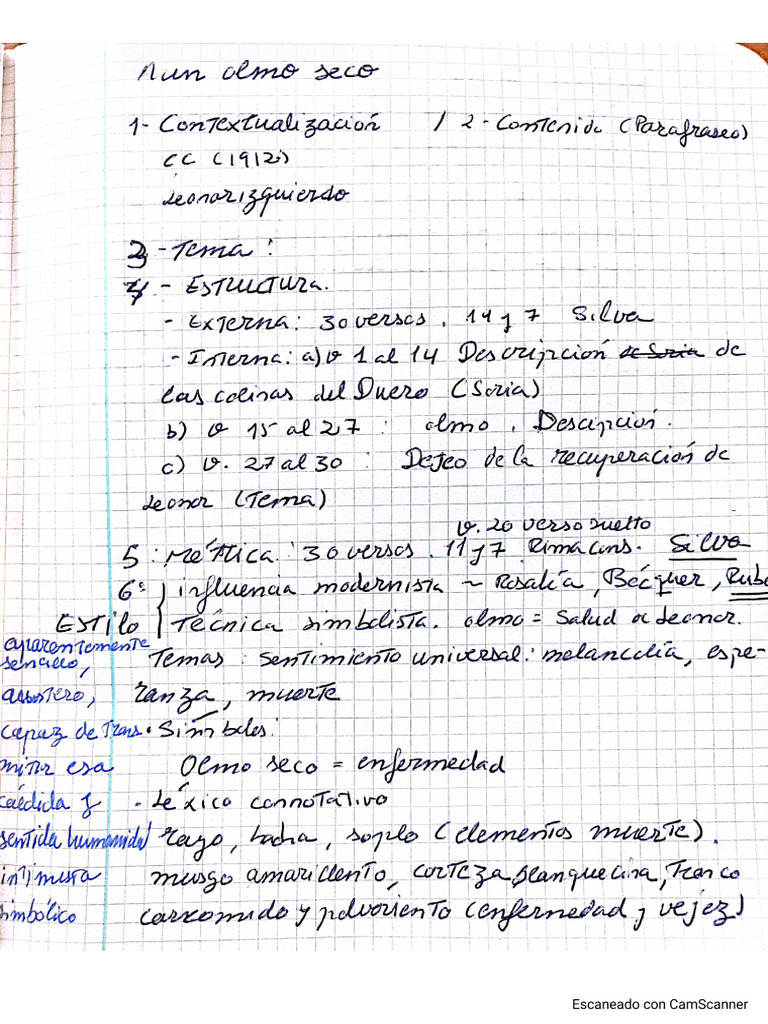 A un olmo seco
1- Contextualización / 2- Contenido (Parafraseo)
CC (1912)
Leonor Izquierdo
3 - Tema :
4 - Estructura.
- Externa: 30 versos. 14 y 7 Silva
- Interna: a) v 1 al 14 Descripción de Soria de
las colinas del Duero (Soria)
b) v 15 al 27 : olmo. Descripción.
c) v. 27 al 30 : Deseo de la recuperación de
Leonor (Tema)
v. 20 verso suelto
5 : Métrica : 30 versos. 11 y 7 Rima cons. Silva
6º influencia modernista ~ Rosalía, Bécquer, Rube
ESTILO Técnica simbolista. olmo = Salud de Leonor.
Temas : sentimiento universal: melancolía, espe-
ranza, muerte
• Símbolos:
Olmo seco = enfermedad
- Léxico connotativo
rayo, hacha, soplo (elementos muerte).
musgo amarillento, corteza blanquecina, tronco
carcomido y polvoriento (enfermedad y vejez)
aparentemente
sencillo,
austero,
capaz de trans
mitir esa
cálida y
sentida humanidad
intimista
simbólico
Escaneado con CamScanner